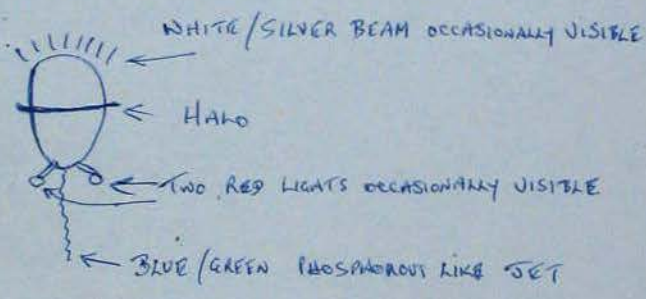 WHITE/SILVER BEAM OCCASIONALLY VISIBLE
HALO
TWO RED LIGHTS OCCASIONALLY VISIBLE
BLUE/GREEN PHOSPHOROUS LIKE JET